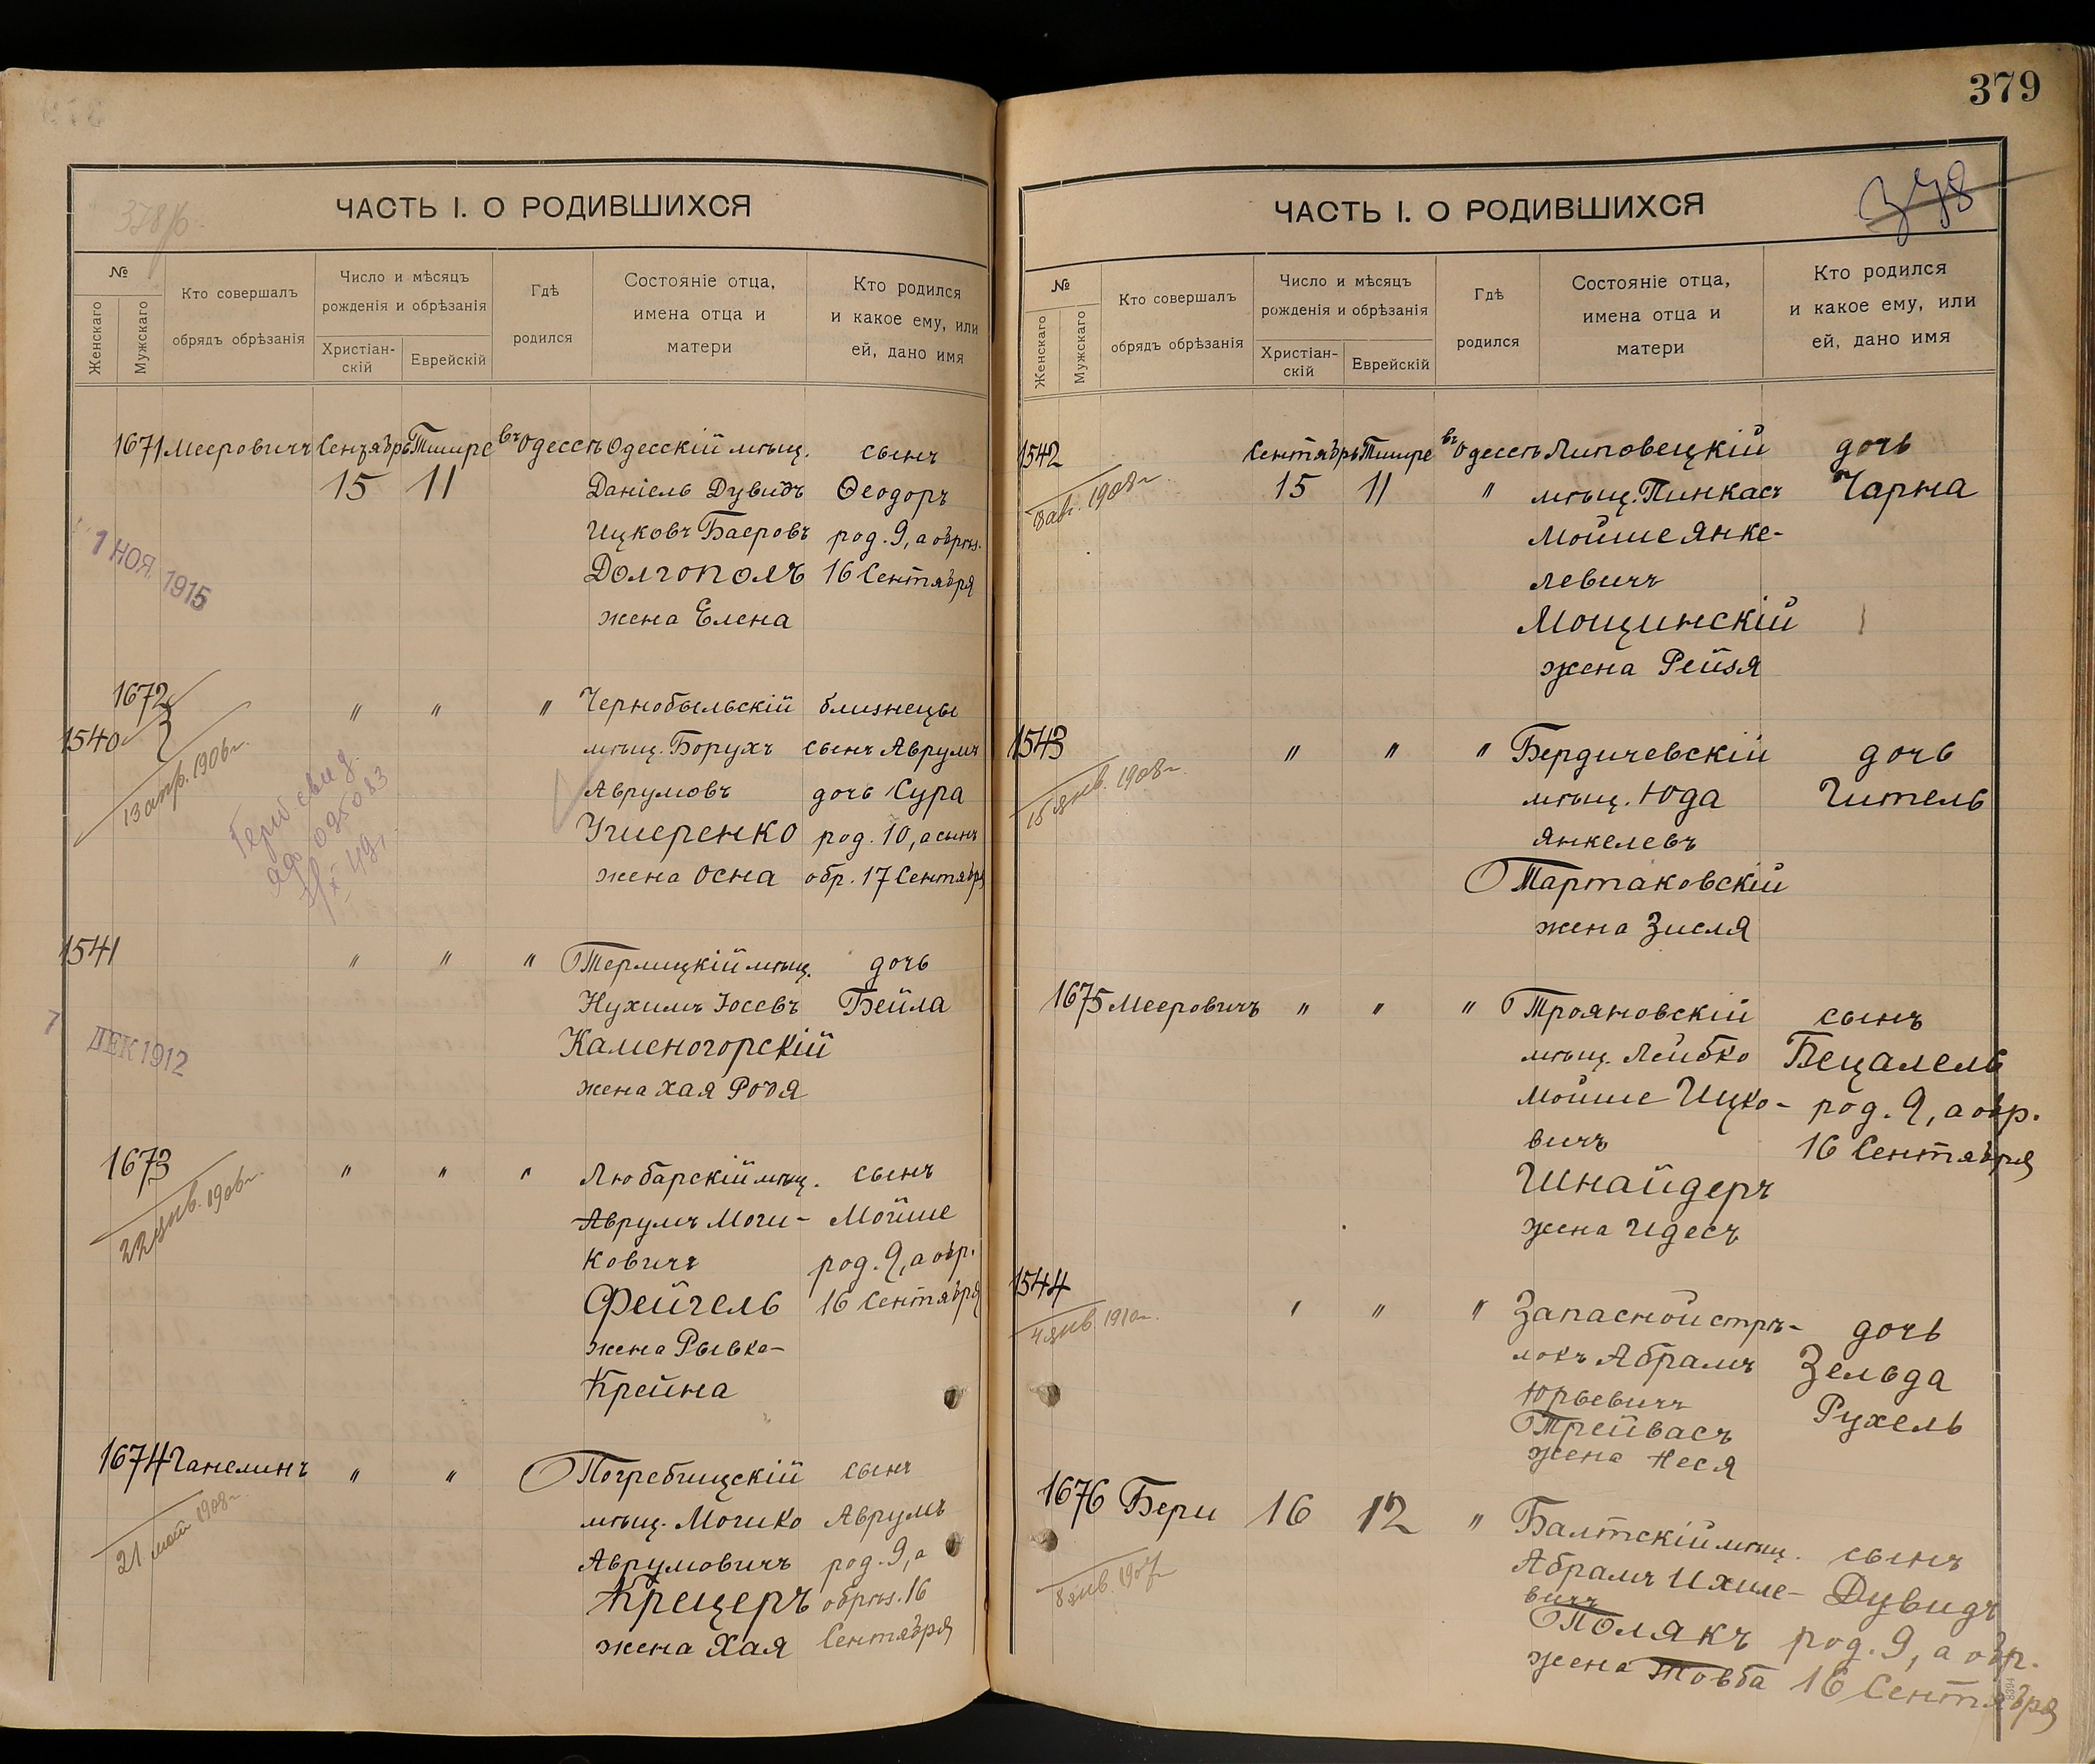 379
ЧАСТЬ I. О РОДИВШИХСЯ
378/б.
№
Женскаго
Мужскаго
Кто совершалъ
обрядъ обрѣзанія
Число и мѣсяцъ
рожденія и обрѣзанія
Христіан-
скій
Еврейскій
Гдѣ
родился
Состояніе отца,
имена отца и
матери
Кто родился
и какое ему, или
ей, дано имя
1671 Мееровичъ Сентябрь Тишре въ Одессѣ Одесскій мѣщ. сынъ
15 11 Даніель Дувидъ Ѳеодоръ
Ицковъ Баеровъ род. 9, а обрѣз.
Долгополъ 16 Сентября
жена Елена
1 НОЯ. 1915
1672 " " " Чернобыльскій близнецы
1540 мѣщ. Борухъ сынъ Аврумъ
13 апр. 1906 г. Аврумовъ дочь Сура
Ушеренко род. 10, а сынъ
жена Осна обр. 17 Сентября
Герб свид.
1541 " " " Терлицкій мѣщ. дочь
Нухимъ Іосевъ Бейла
Каменогорскій
жена Хая Родя
7 ДЕК 1912
1673 " " " Любарскій мѣщ. сынъ
22 янв. 1906 г. Аврумъ Мош- Мойше
ковичъ род. 9, а обр.
Фейгель 16 Сентября
жена Рывка-
Крейна
1674 Ганелинъ " " Погребищскій сынъ
21 май 1908 г. мѣщ. Мошко Аврумъ
Аврумовичъ род. 9, а
Крецеръ обрѣз. 16
жена Хая Сентября
ЧАСТЬ I. О РОДИВШИХСЯ
378
№
Женскаго
Мужскаго
Кто совершалъ
обрядъ обрѣзанія
Число и мѣсяцъ
рожденія и обрѣзанія
Христіан-
скій
Еврейскій
Гдѣ
родился
Состояніе отца,
имена отца и
матери
Кто родился
и какое ему, или
ей, дано имя
1542 Сентябрь Тишре въ Одессѣ Липовецкій дочь
1908 г. 15 11 " мѣщ. Пинкасъ Чарна
Мойше Янке-
левичъ
Мощинскій
жена Рейзя
1543 " " " Бердичевскій дочь
15 янв. 1908 г. мѣщ. Юда Гитель
Янкелевъ
Тартаковскій
жена Зисля
1675 Мееровичъ " " " Трояновскій сынъ
мѣщ. Лейбко Бецалель
Мойше Ицко- род. 9, а обр.
вичъ 16 Сентября
Шнайдеръ
жена Идесъ
1544 " " " Запасной стрѣ- дочь
4 янв. 1910 г. локъ Абрамъ Зельда
Юрьевичъ Рухель
Трейвасъ
жена Неся
1676 Бери 16 12 " Балтскій мѣщ. сынъ
8 янв. 1907 г. Абрамъ Ихиле- Дувидъ
вичъ
Полякъ род. 9, а обр.
жена Товба 16 Сентября